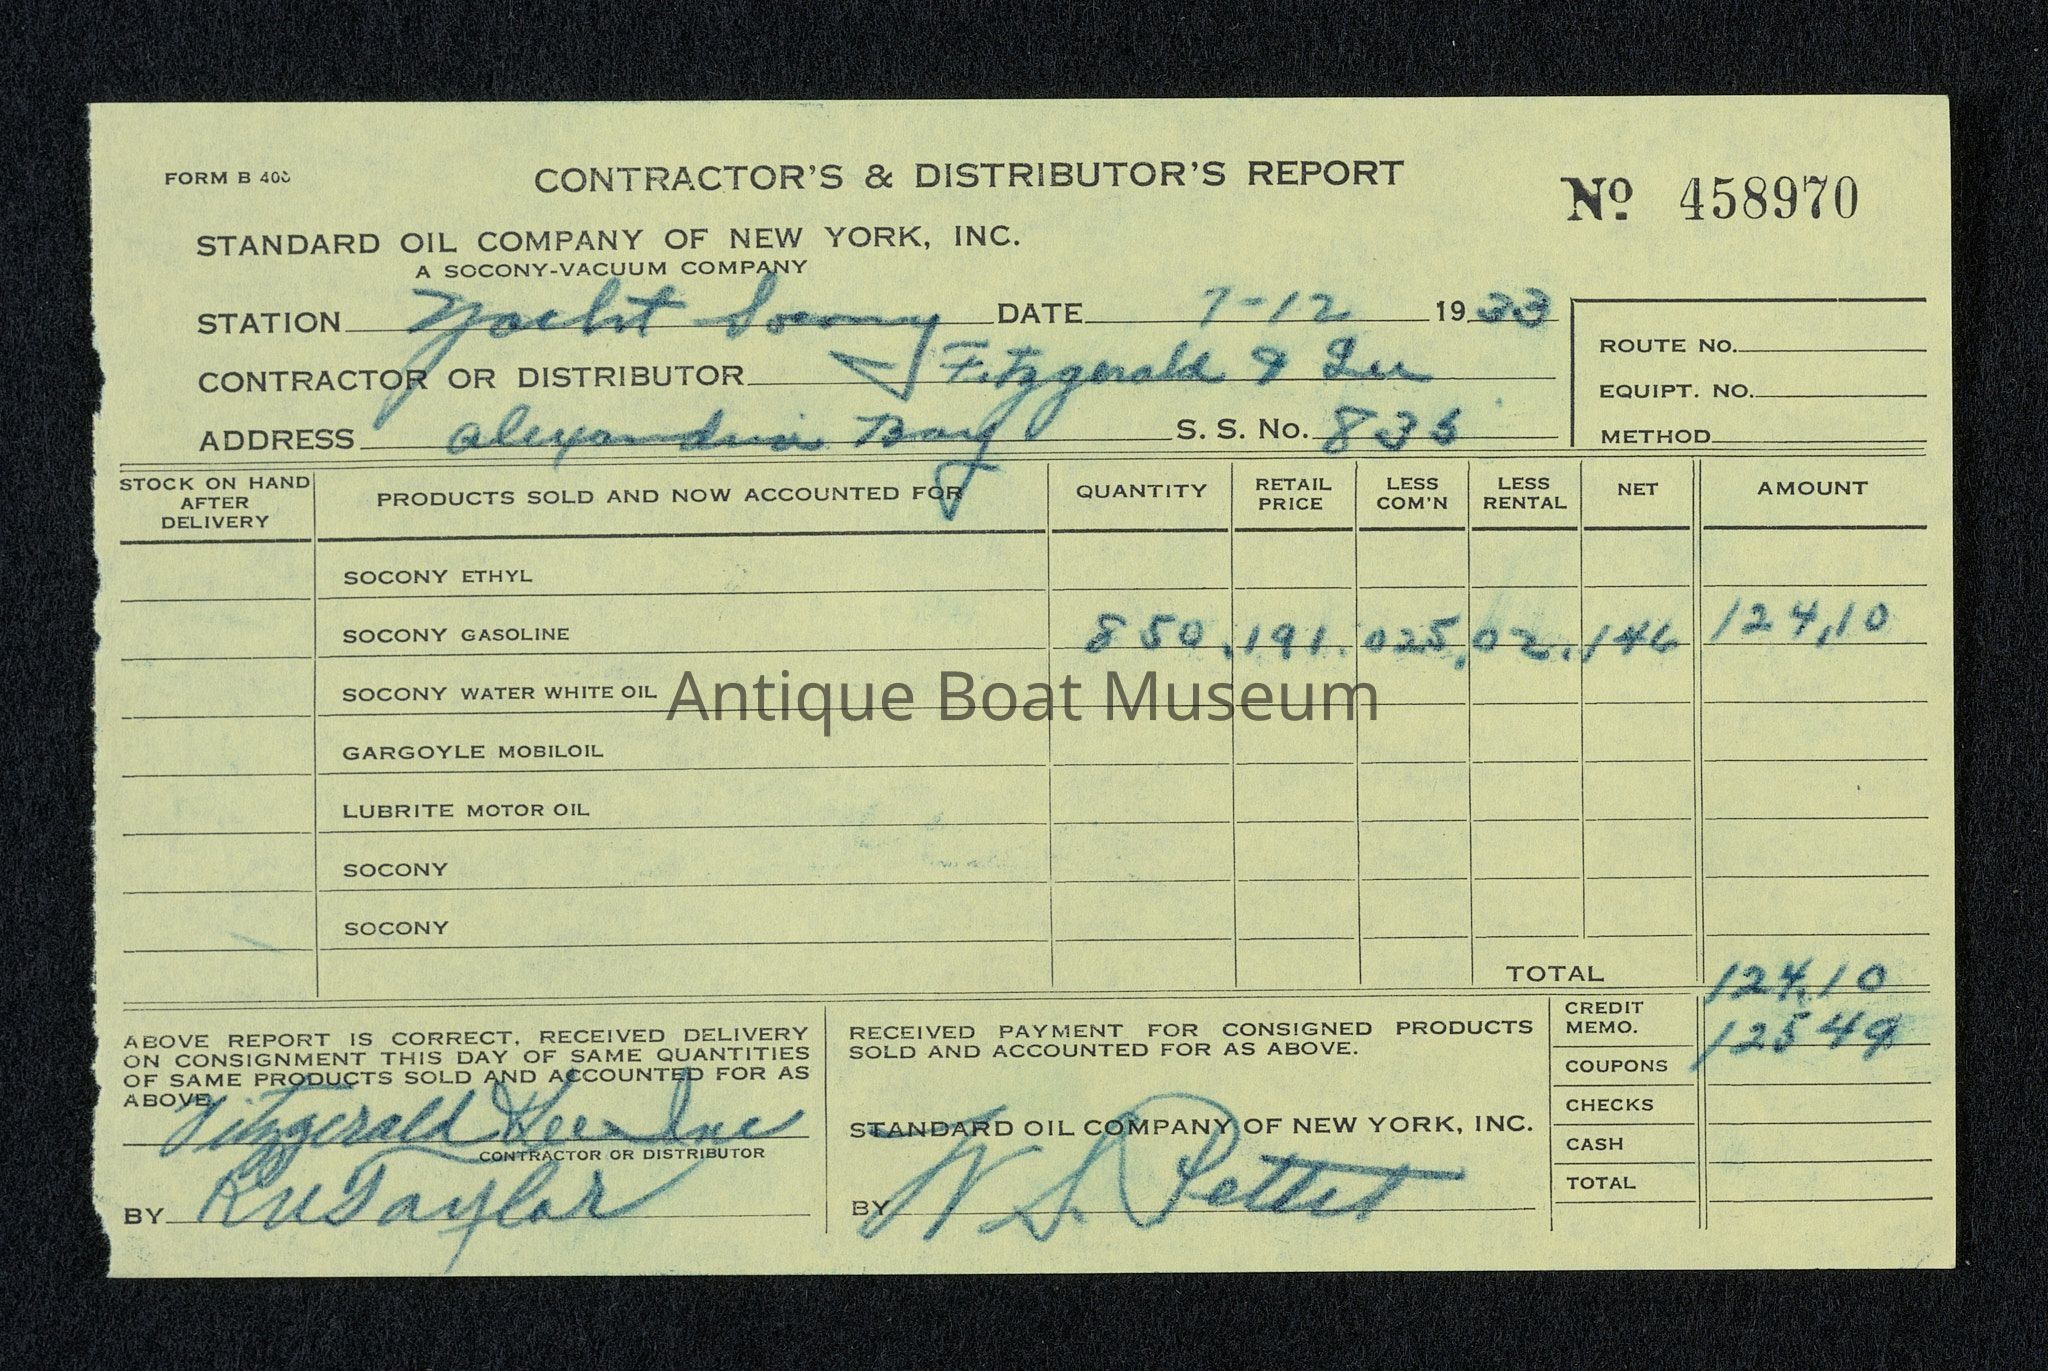 FORM B 40
CONTRACTOR'S & DISTRIBUTOR'S REPORT
Nº 458970
STANDARD OIL COMPANY OF NEW YORK, INC.
A SOCONY-VACUUM COMPANY
STATION Yacht Socony DATE 7-12 1933
CONTRACTOR OR DISTRIBUTOR Fitzgerald & Lee
ADDRESS Alexandria Bay S. S. No. 835
ROUTE No.
EQUIPT. NO.
METHOD
STOCK ON HAND AFTER DELIVERY PRODUCTS SOLD AND NOW ACCOUNTED FOR QUANTITY RETAIL PRICE LESS COM'N LESS RENTAL NET AMOUNT
SOCONY ETHYL
SOCONY GASOLINE 850 .191 .025 .02 .146 124.10
SOCONY WATER WHITE OIL
Antique Boat Museum
GARGOYLE MOBILOIL
LUBRITE MOTOR OIL
SOCONY
SOCONY
TOTAL 124.10
ABOVE REPORT IS CORRECT, RECEIVED DELIVERY
ON CONSIGNMENT THIS DAY OF SAME QUANTITIES
OF SAME PRODUCTS SOLD AND ACCOUNTED FOR AS
ABOVE
Fitzgerald & Lee Inc
CONTRACTOR OR DISTRIBUTOR
BY Taylor
RECEIVED PAYMENT FOR CONSIGNED PRODUCTS
SOLD AND ACCOUNTED FOR AS ABOVE.
STANDARD OIL COMPANY OF NEW YORK, INC.
BY Pettit
CREDIT MEMO. 125 49
COUPONS
CHECKS
CASH
TOTAL